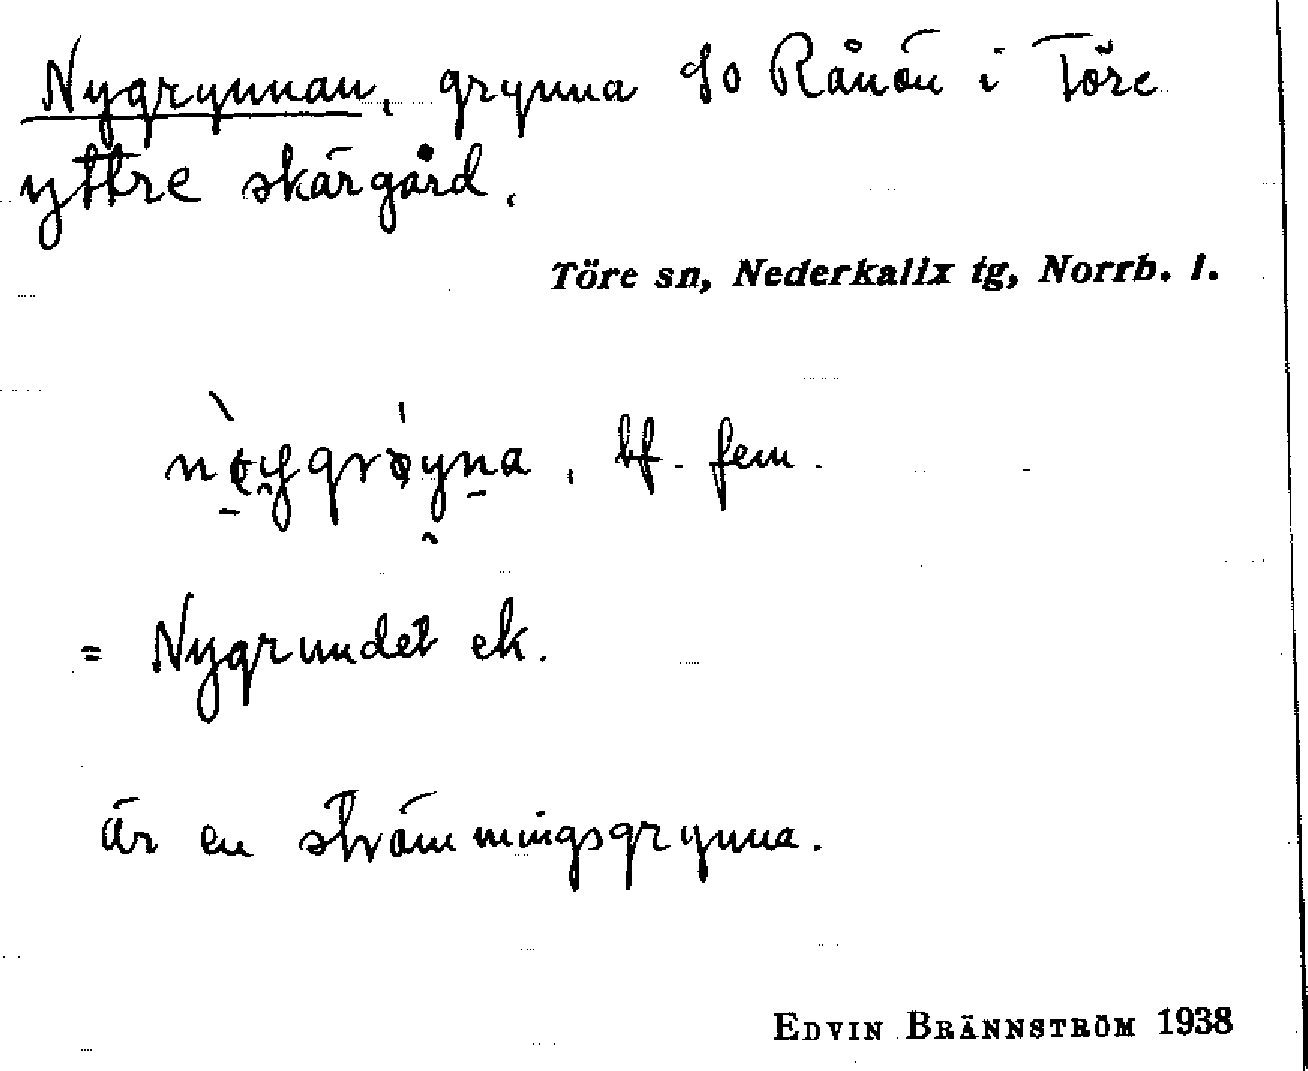 Nygrynnan, grynna SO Rånön i Töre
yttre skärgård.
Töre sn, Nederkalix tg, Norrb. l.
bf. fem.
= Nygrundet ek.
är en strömmingsgrynna.
EDVIN BRÄNNSTRÖM 1938